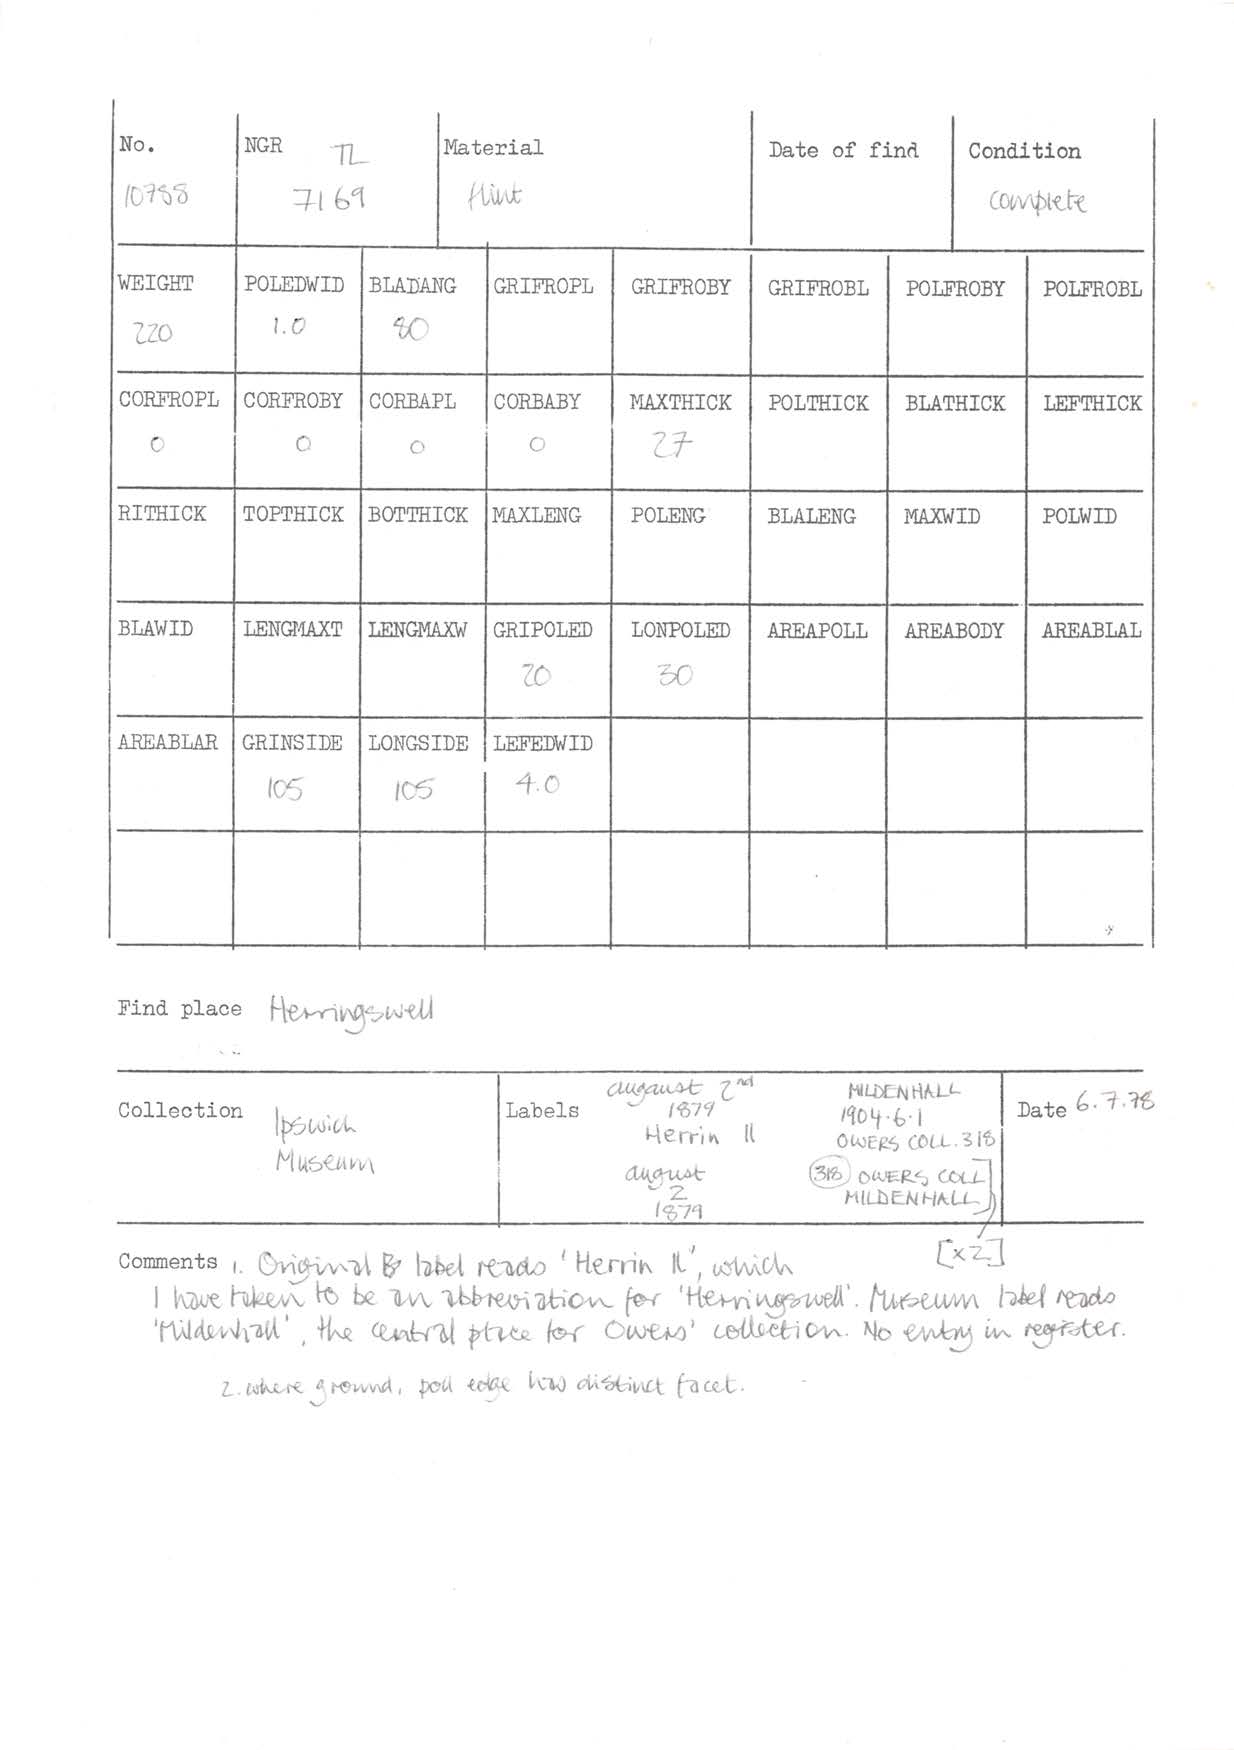 No. NGR TL Material Date of find Condition
10788 7169 flint complete
WEIGHT POLEDWID BLADANG GRIFROPL GRIFROBY GRIFROBL POLFROBY POLFROBL
220 1.0 80
CORFROPL CORFROBY CORBAPL CORBABY MAXTHICK POLTHICK BLATHICK LEFTHICK
0 0 0 0 27
RITHICK TOPTHICK BOTTHICK MAXLENG POLENG BLALENG MAXWID POLWID
BLAWID LENGMAXT LENGMAXW GRIPOLED LONPOLED AREAPOLL AREABODY AREABLAL
20 30
AREABLAR GRINSIDE LONGSIDE LEFEDWID
105 105 4.0
Find place Herringswell
Collection Ipswich
Museum
Labels augaust 2nd
1879
Herrin ll
august
2
1879
MILDENHALL
1904.6.1
OWERS COLL. 318
318 OWERS COLL
MILDENHALL
[x2]
Date 6.7.78
Comments 1. Original label reads 'Herrin ll', which
I have taken to be an abbreviation for 'Herringswell'. Museum label reads
'Mildenhall', the central place for Owers' collection. No entry in register.
2. where ground, poll edge has distinct facet.